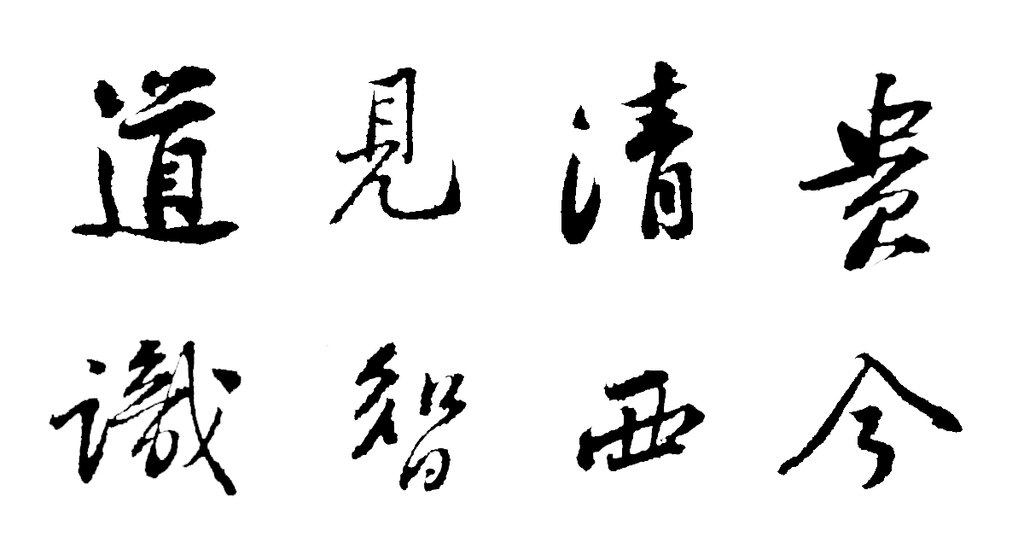 道見清貴
識智西今